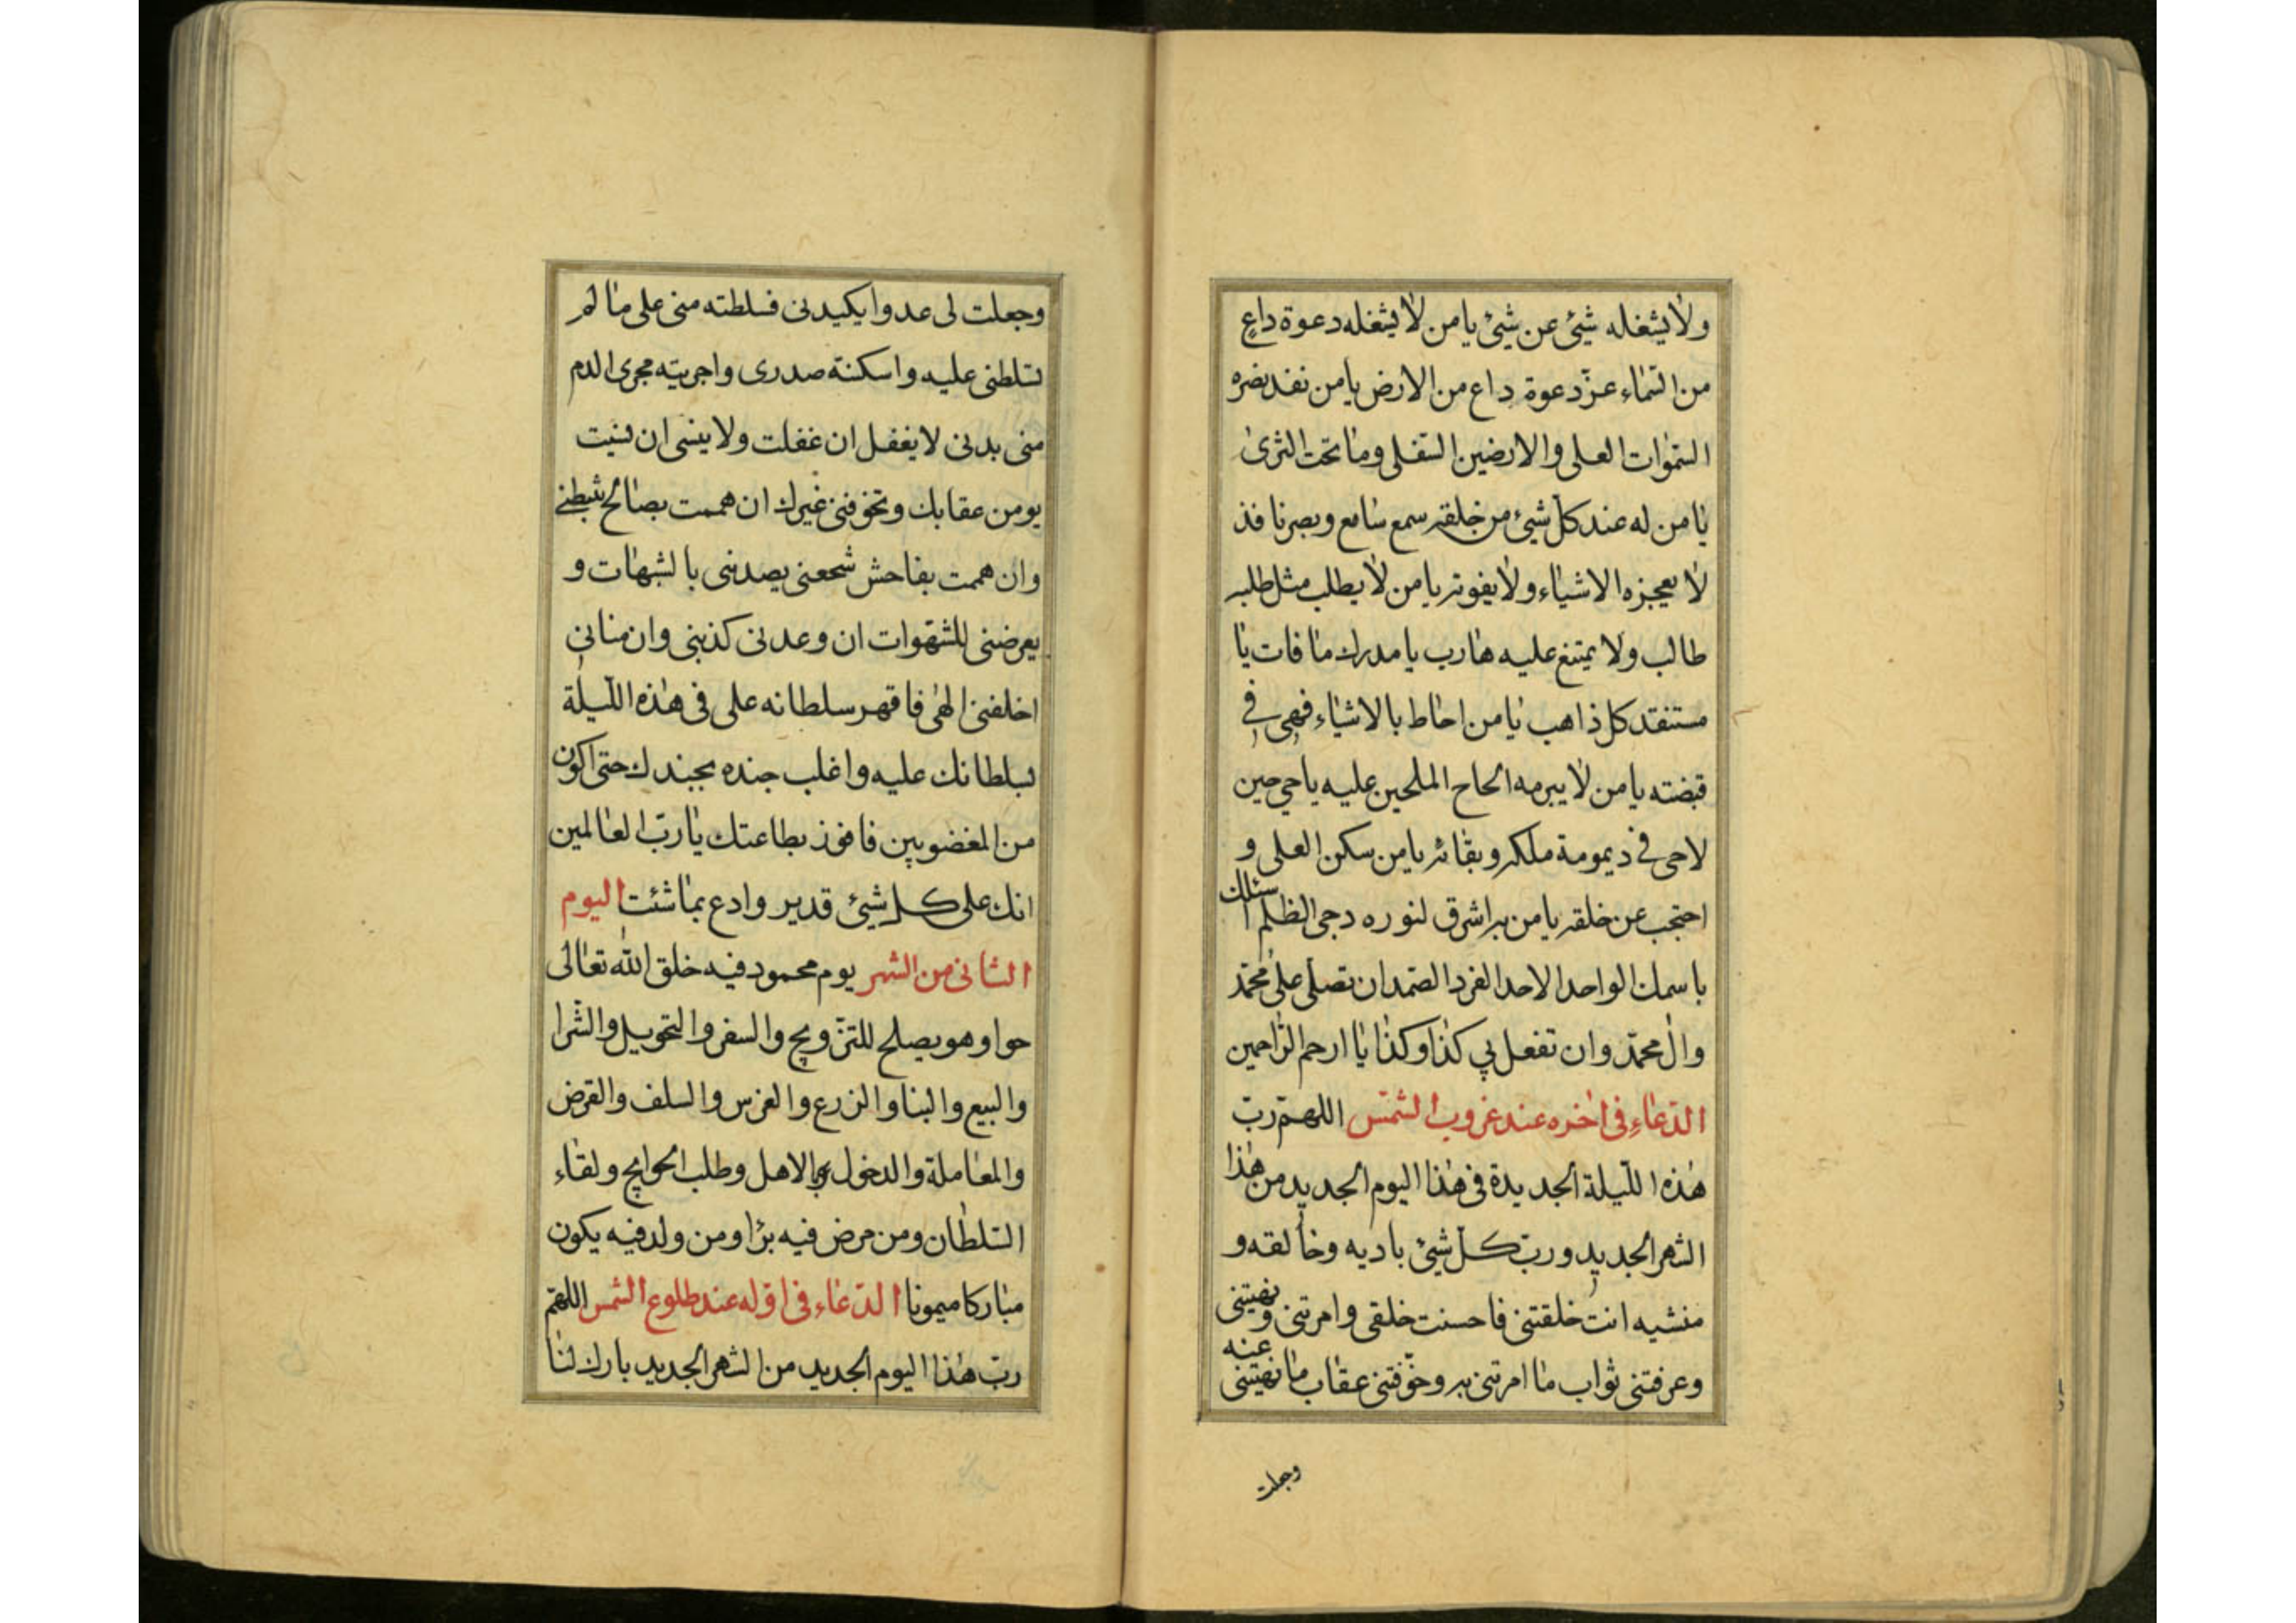 ولا يشغله شئ عن شئ يا من لا يشغله دعوة داع
من السماء عن دعوة داع من الارض يا من نفذ بصره
السموات العلى والارضين السفلى وما تحت الثرى
يا من له عند كل شئ من خلقه سمع سامع وبصر نافذ
لا يعجزه الاشياء ولا يفوته يا من لا يطلب مثل طلبه
طالب ولا يمتنع عليه هارب يا مدرك ما فات يا
مستنقذ كل ذاهب يا من احاط بالاشياء فهي في
قبضته يا من لا يبرمه الحاح الملحين عليه يا حي حين
لا حي في ديمومة ملكه وبقائه يا من سكن العلى و
احتجب عن خلقه يا من به اشرق لنوره دجى الظلم اسئلك
باسمك الواحد الاحد الفرد الصمد ان تصلى على محمد
وال محمد وان تفعل بي كذا وكذا يا ارحم الراحمين
الدعاء في اخره عند غروب الشمس اللهم رب
هذه الليلة الجديدة في هذا اليوم الجديد من هذا
الشهر الجديد ورب كل شئ باديه وخالقه و
منشيه انت خلقتنى فاحسنت خلقى وامرتنى ونهيتنى
وعرفتنى ثواب ما امرتنى به وخوفتنى عقاب ما نهيتنى عنه
وجعلت
وجعلت لى عدوا يكيدنى فسلطته منى على ما لم
تسلطنى عليه واسكنته صدرى واجريته مجرى الدم
منى بدنى لا يغفل ان غفلت ولا ينسى ان نسيت
يومن عقابك وتخوفنى غيرك ان هممت بصالح ثبطنى
وان هممت بفاحش شجعنى يصدنى بالشبهات و
يعرضنى للشهوات ان وعدنى كذبنى وان منانى
اخلفنى الهى فاقهر سلطانه على في هذه الليلة
بسلطانك عليه واغلب جنده بجندك حتى اكون
من المغضوبين فافوذ بطاعتك يا رب العالمين
انك على كل شئ قدير وادع بما شئت اليوم
الثانى من الشهر يوم محمود فيه خلق الله تعالى
حوا وهو يصلح للتزويج والسفر والتحويل والشرا
والبيع والبنا والزرع والغرس والسلف والقرض
والمعاملة والدخول بالاهل وطلب الحوايج ولقاء
السلطان ومن مرض فيه برا ومن ولد فيه يكون
مباركا ميمونا الدعاء في اوله عند طلوع الشمس اللهم
رب هذا اليوم الجديد من الشهر الجديد بارك لنا